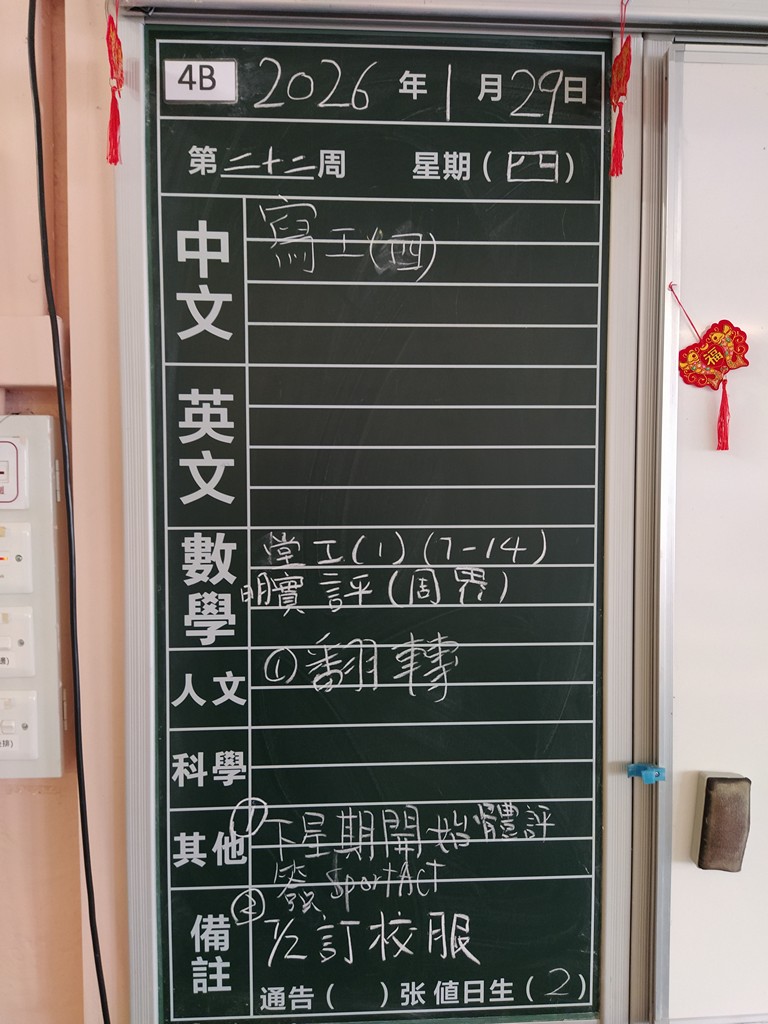 4B 2026 年 1 月 29 日
第 二十二 周 星期 ( 四 )
中文
寫工(四)
英文
數學
堂工(1) (7-14)
明實評(周界)
人文
①翻轉
科學
其他
①下星期開始體評
簽 SportACT
備註
②7/2訂校服
通告 ( ) 张 值日生 ( 2 )
福